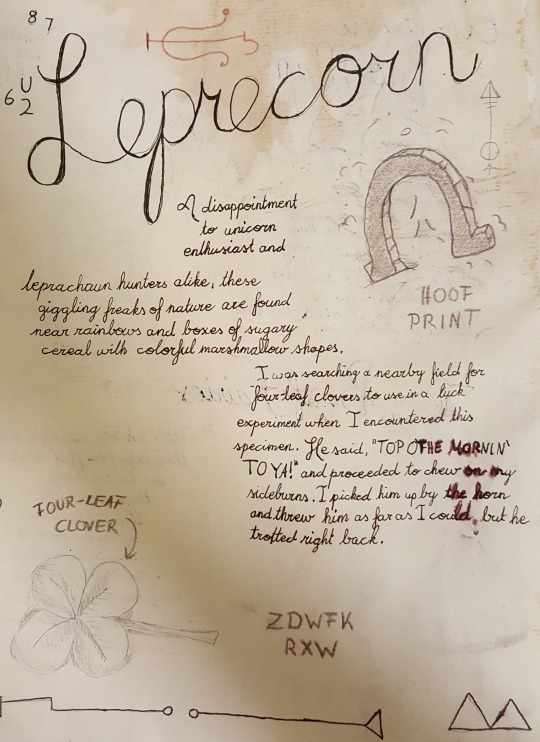 8 7
Leprecorn
6 U
2
A disappointment
to unicorn
enthusiast and
leprachaun hunters alike, these
giggling freaks of nature are found
near rainbows and boxes of sugary
cereal with colorful marshmallow shapes.
HOOF
PRINT
I was searching a nearby field for
four-leaf clovers to use in a luck
experiment when I encountered this
specimen. He said, "TOP O'THE MORNIN'
TO YA!" and proceeded to chew on my
sideburns. I picked him up by the horn
and threw him as far as I could, but he
trotted right back.
FOUR-LEAF
CLOVER
ZDWFK
RXW